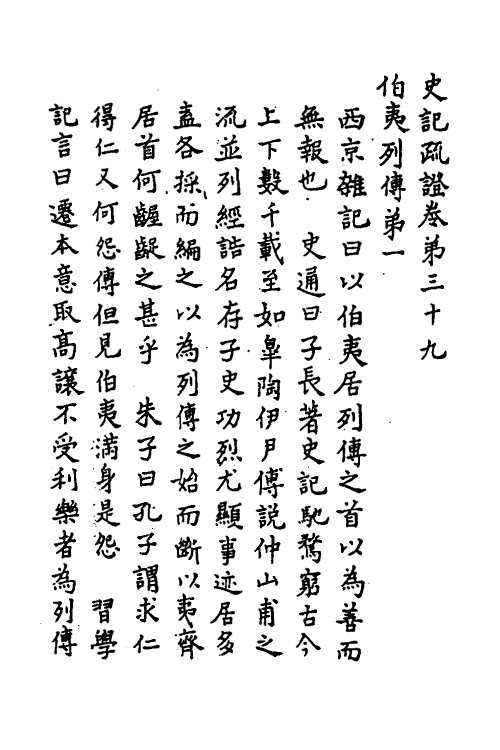 史記疏證卷第三十九
伯夷列傳第一
西京雜記曰以伯夷居列傳之首以為善而
無報也 史通曰子長著史記馳騖窮古今
上下數千載至如臯陶伊尹傅說仲山甫之
流並列經誥名存子史功烈尤顯事迹居多
盍各採而編之以為列傳之始而斷以夷齊
居首何齷齪之甚乎 朱子曰孔子謂求仁
得仁又何怨傳但見伯夷滿身是怨 習學
記言曰遷本意取高讓不受利樂者為列傳